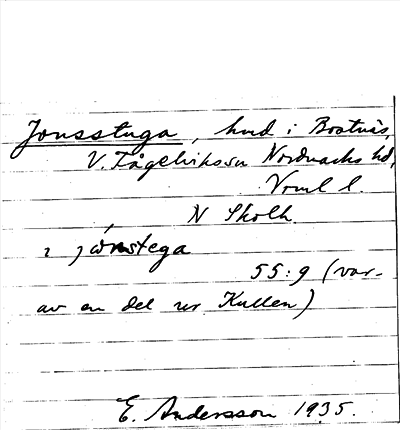 Jonsstuga, hmd i Bostnäs,
V. Fågelviks sn Nordmarks hd,
Vrml l.
N Skolh.
i jònstega
55:9 (var-
av en del ur Kullen)
E. Andersson 1935.